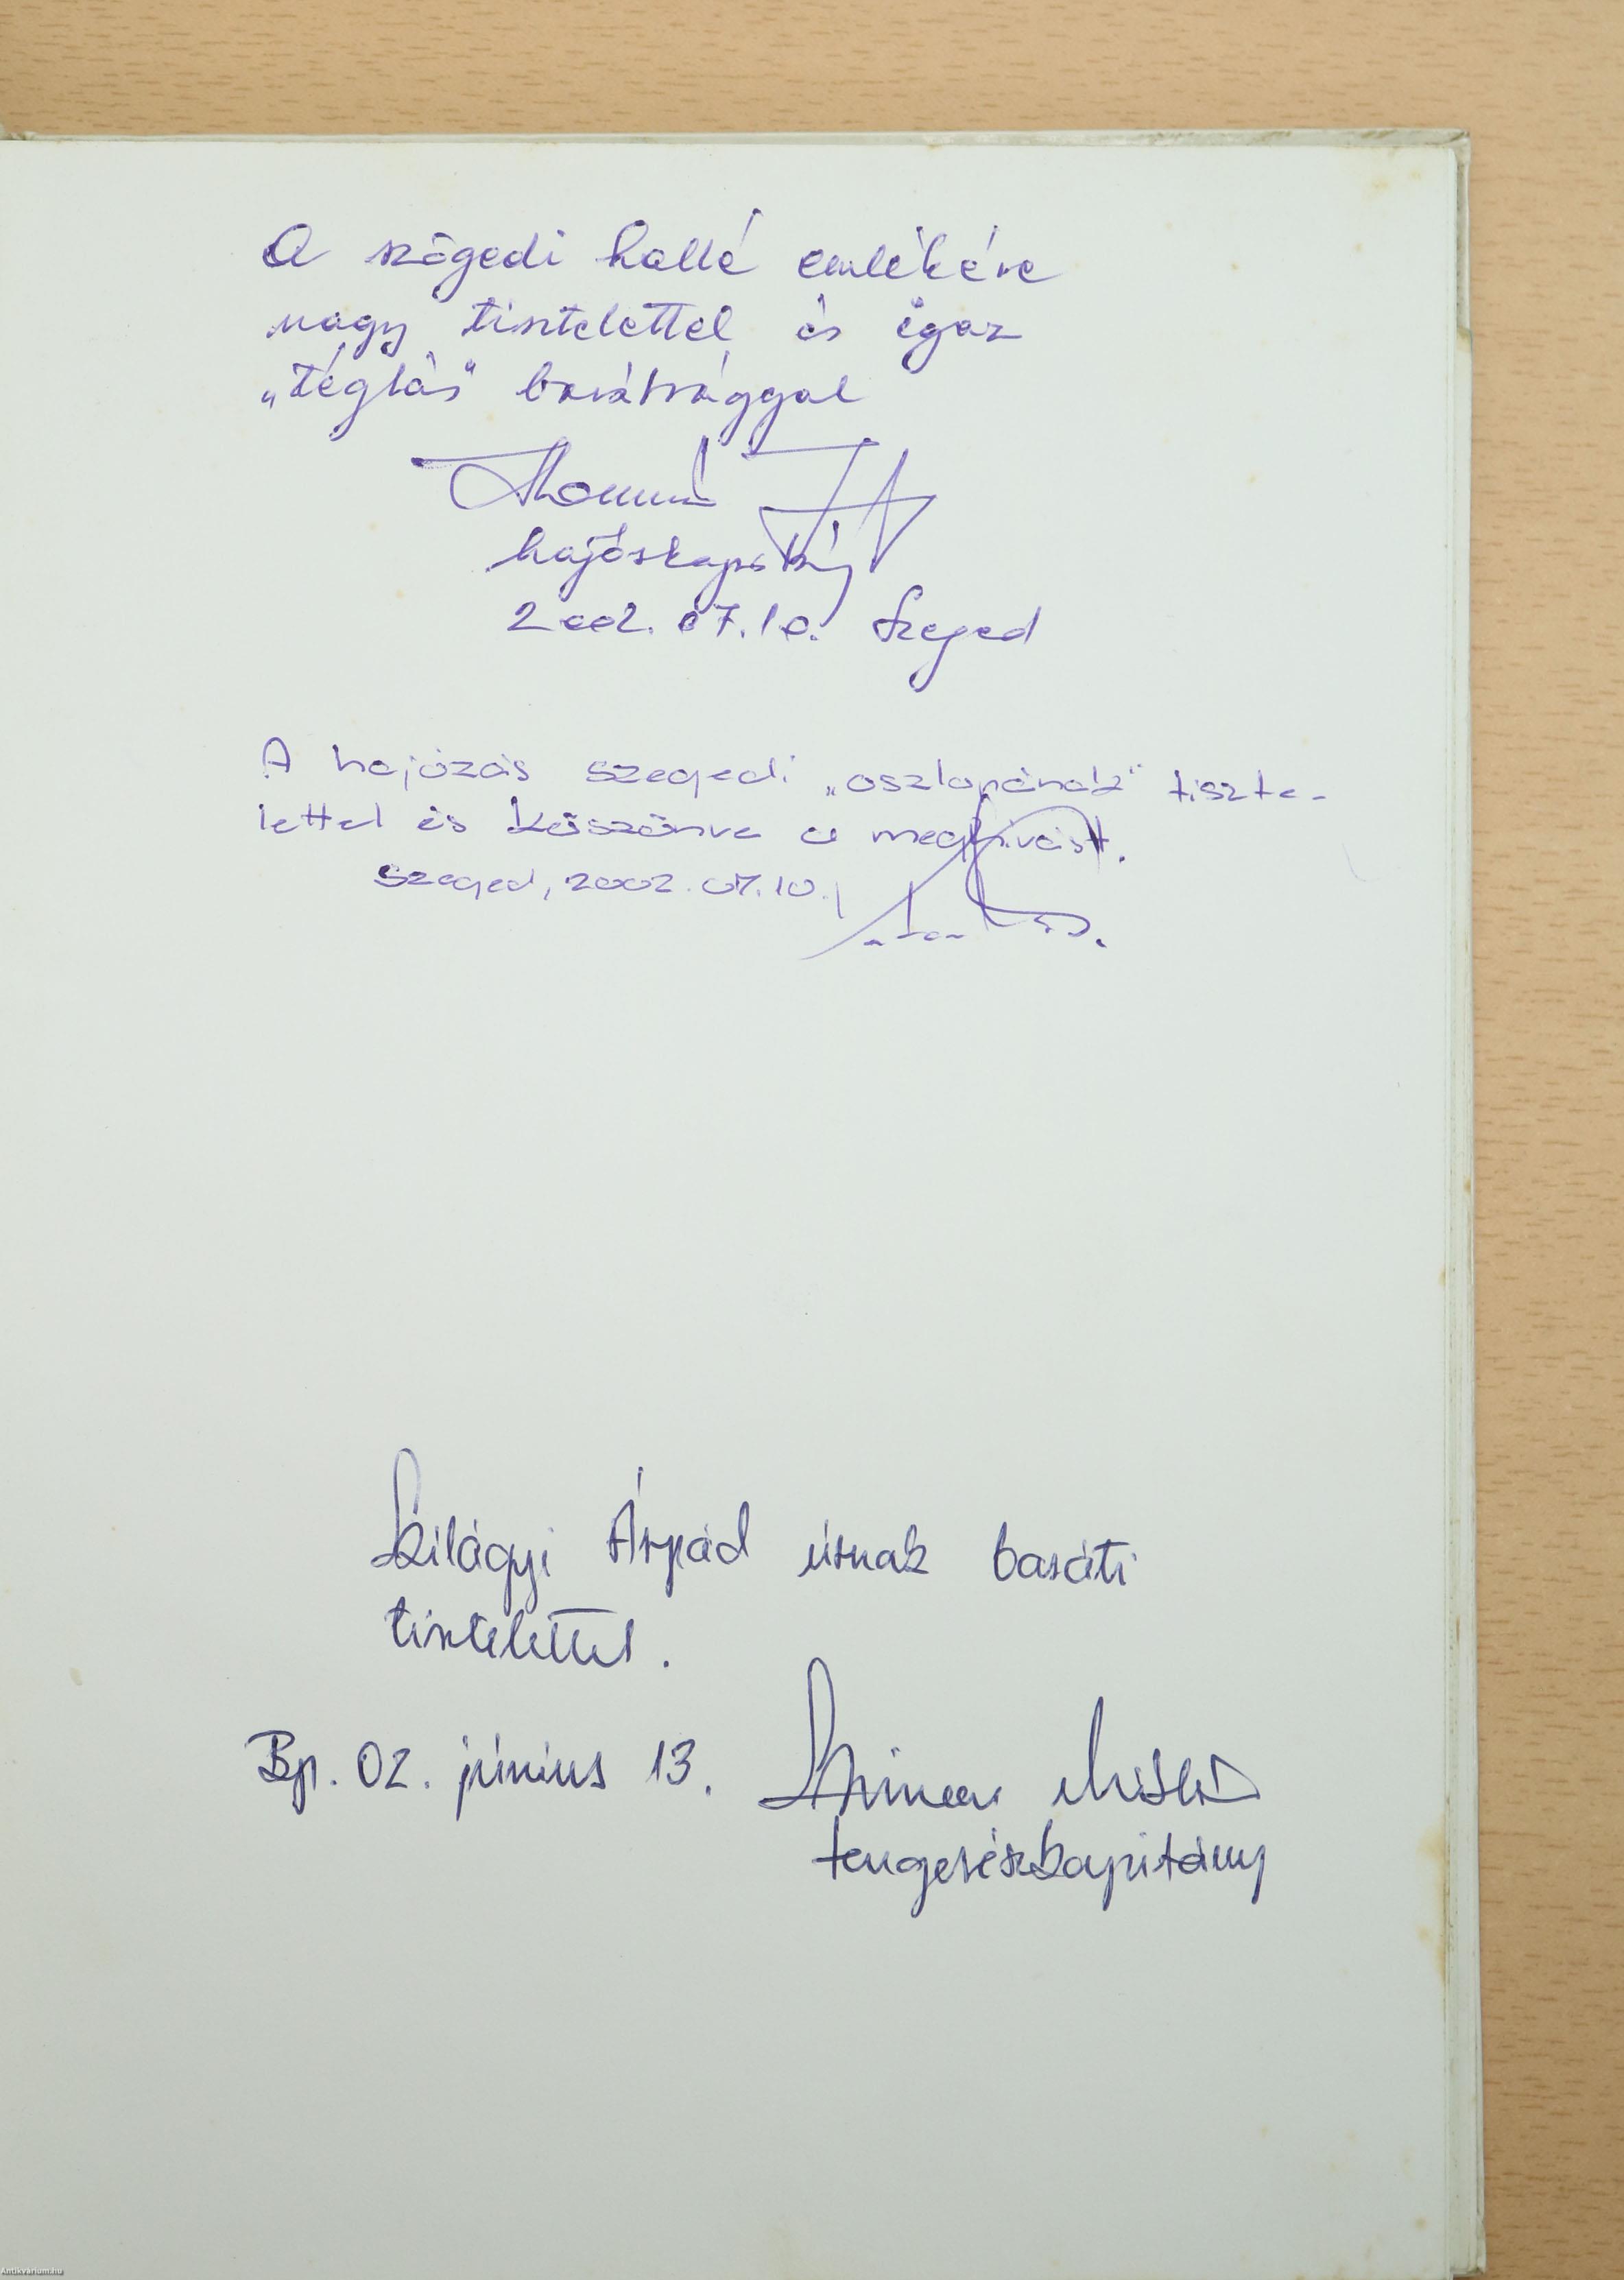 A szögedi hallé emlékére
nagy tisztelettel és igaz
„Téglás” barátsággal
hajóskapitány
2002. 07.10. Szeged
A hajózás szegedi „oszlopának” tiszte-
lettel és köszönve a meghívást.
Szeged, 2002. 07.10.
Szilágyi Árpád úrnak baráti
tisztelettel.
Bp. 02. június 13.
tengerészkapitány
Antikvarium.hu